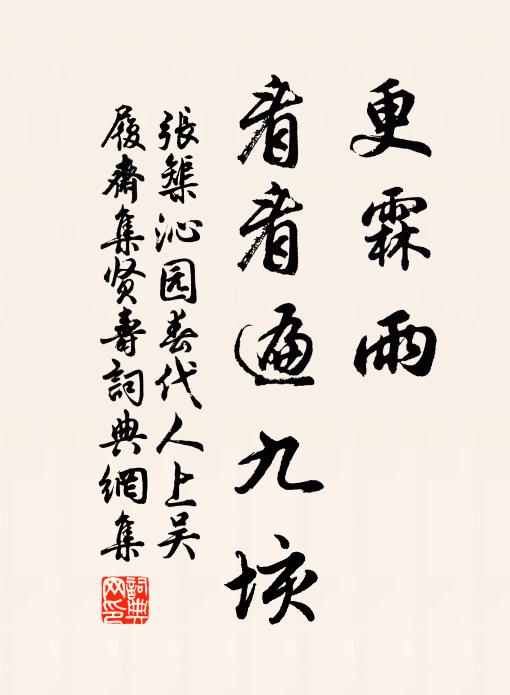 更霖雨
看看遍九垓
張榘沁园春代人上吴
履齋集贤壽詞典網集
詞典網印